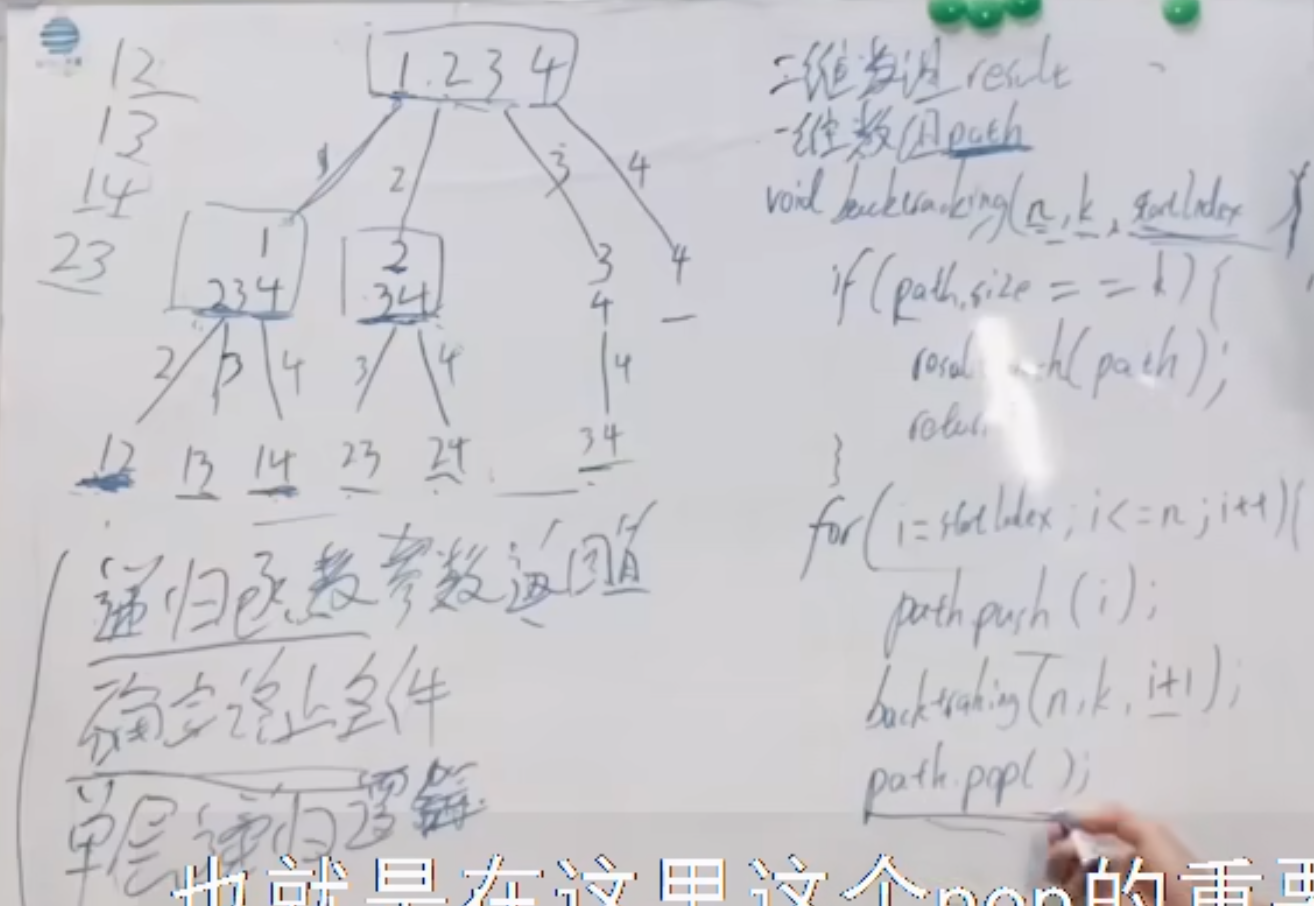 1 2 3 4
12
13
14
23
1 2 3 4
1
234
2
34
3
4
4
2 3 4 3 4 4
12 13 14 23 24 34
递归函数参数返回值
确定终止条件
单层递归逻辑
二维数组 result
一维数组 path
void backtracking(n, k, startIndex)
if (path.size == k) {
(path);
}
for( i=startIndex; i<=n; i++){
path push (i);
backtraking(n, k, i+1);
path.pop( );
也就是在这里这个pop的重要